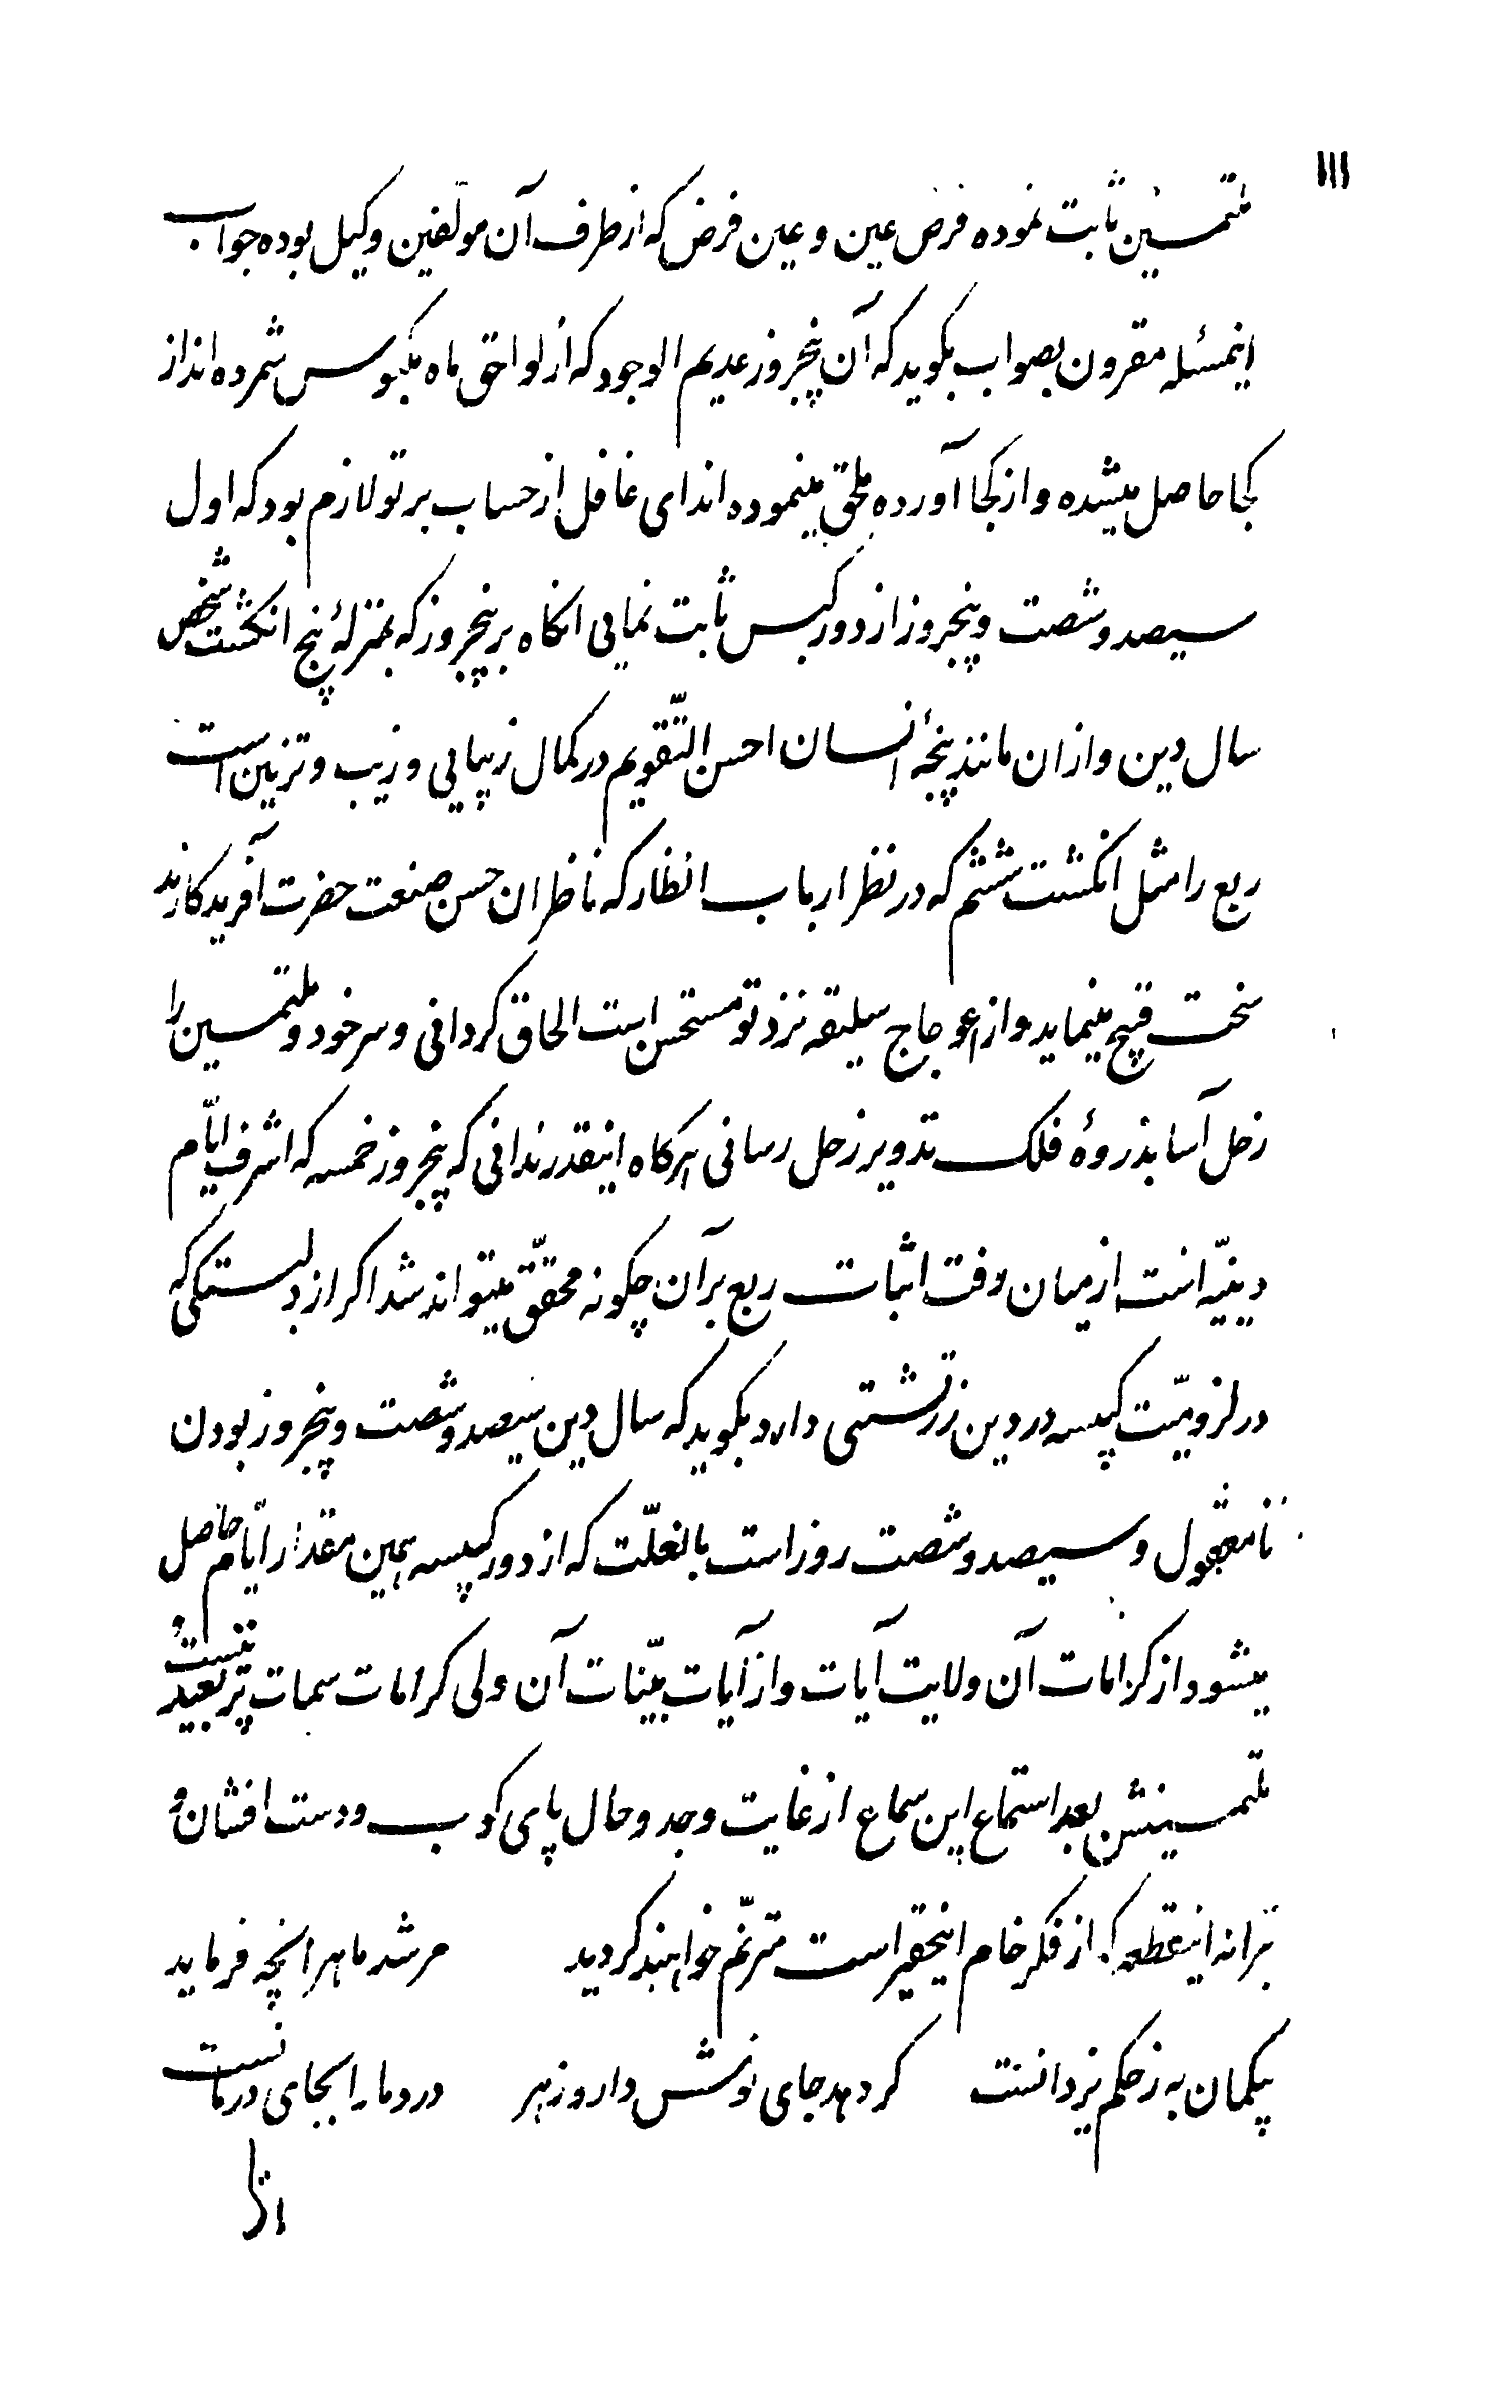 ۱۱۱
ملتمسین ثابت نموده فرض عین و عین فرض که از طرف آن مولّفین وکیل بوده جواب
اینمسئله مقرون بصواب بکوید که آن پنجروز عدیم الوجود که از لواحق ماه مکبوس شمرده اند از
کجا حاصل میشده و از کجا آورده ملحق مینموده اند ای غافل از حساب بر تو لازم بود که اول
سیصد و شصت و پنجروز از دور کبس ثابت نمایی انکاه بر پنجروز که بمنزلهٔ پنج انکشت شخص
سال دین و ازان مانند پنجهٔ انسان احسن التّقویم در کمال زیبایی و زیب و تزیین است
ربع را مثل انکشت ششم که در نظر ارباب انظار که ناظران حسن صنعت حضرت آفریدکارند
سخت قبیح مینماید و از اعوجاج سلیقه نزد تو مستحسن است الحاق کردانی و سر خود و ملتمسین را
زحل آسا بذروهٔ فلک تدویر زحل رسانی هرکاه اینقدر ندانی که پنجروز خمسه که اشرف ایّام
دینیّه است از میان رفت اثبات ربع بر آن چکونه محقّق میتواند شد اکر از دلبستکی که
در لزومیّت کبیسه در دین زرتشتی دارد بکوید که سال دین سیصد و شصت و پنجروز بودن
نامقبول و سیصد و شصت روز است بانعلّت که از دور کبیسه همین مقدار ایّام حاصل
میشود از کرامات آن ولایت آیات و از آیات بیّنات آن ولی کرامات سمات پر بعید نیست و
ملتمسینش بعد استماع این سماع از غایت وجد و حال پای کوب و دست افشان و
بترانه اینقطعه که از فکر خام اینحقیر است مترنّم خواهند کردید    مرشد ما هر انچه فرماید
بیکمان به ز حکم یزدانست    کر دهد جای نوش دارو زهر    درد ما را بجای درمانست